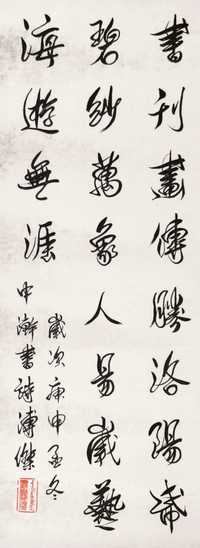 書刊畫傳勝洛陽
碧紗萬象人易歲藝
海遊無涯
歲次庚申孟冬
書詩溥傑